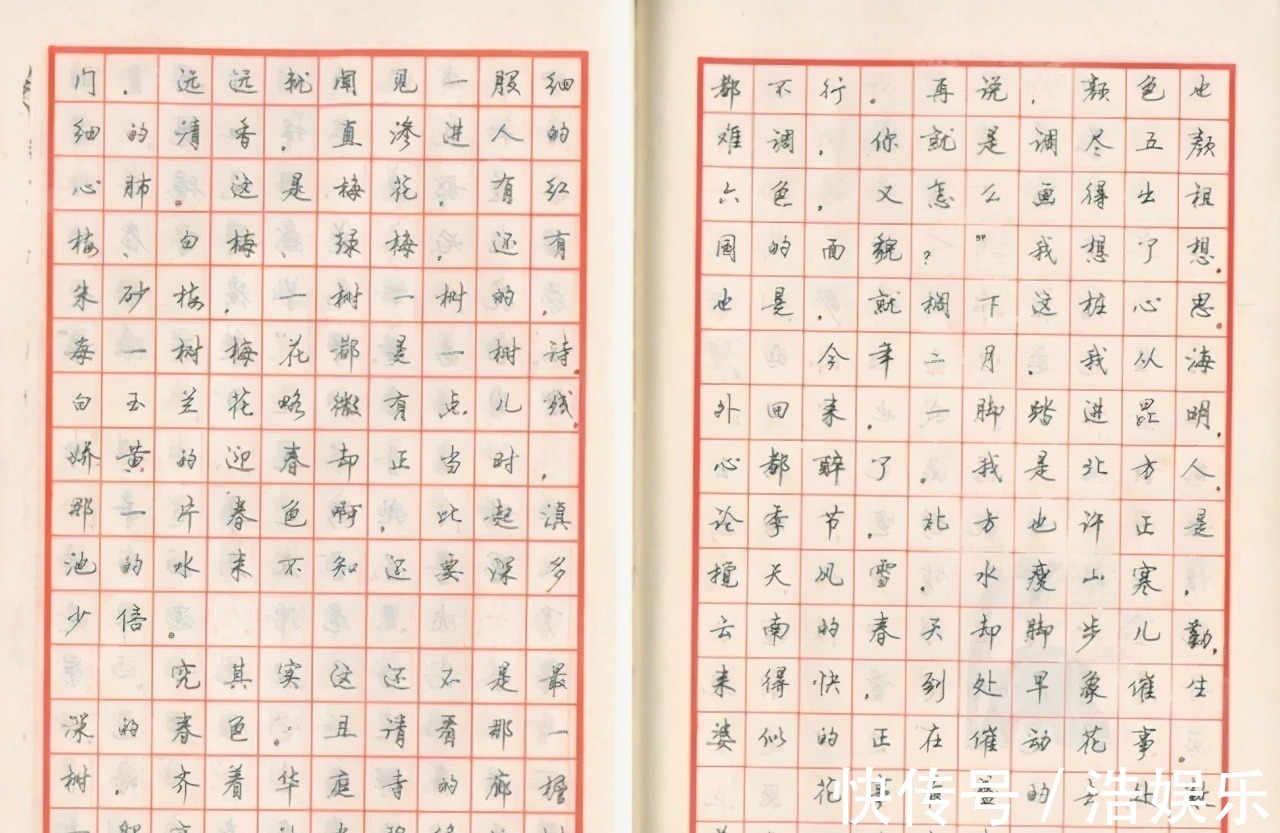 都不行。再说，颜色也
难调，你就是调尽五颜
六色，又怎么画得出祖
国的面貌？”我想了想，
也是，就搁下这桩心思。
今年二月，我从海
外回来，一脚踏进昆明，
心都醉了。我是北方人，
论季节，北方也许正是
搅天风雪，水瘦山寒，
云南的春天却脚步儿勤，
来得快，到处早象催生
婆似的正在催动花事。
花事最盛的去处数
门。远远就闻见一股细
细的清香，直渗进人的
心肺。这是梅花，有红
梅、白梅、绿梅，还有
朱砂梅，一树一树的，
每一树梅花都是一树诗。
白玉兰花略微有点儿残，
娇黄的迎春却正当时，
那一片春色啊，比起滇
池的水来不知还要深多
少倍。
究其实这还不是最
深的春色。且请看那一
树，齐着华庭寺的廊檐
快传号 / 浩娱乐